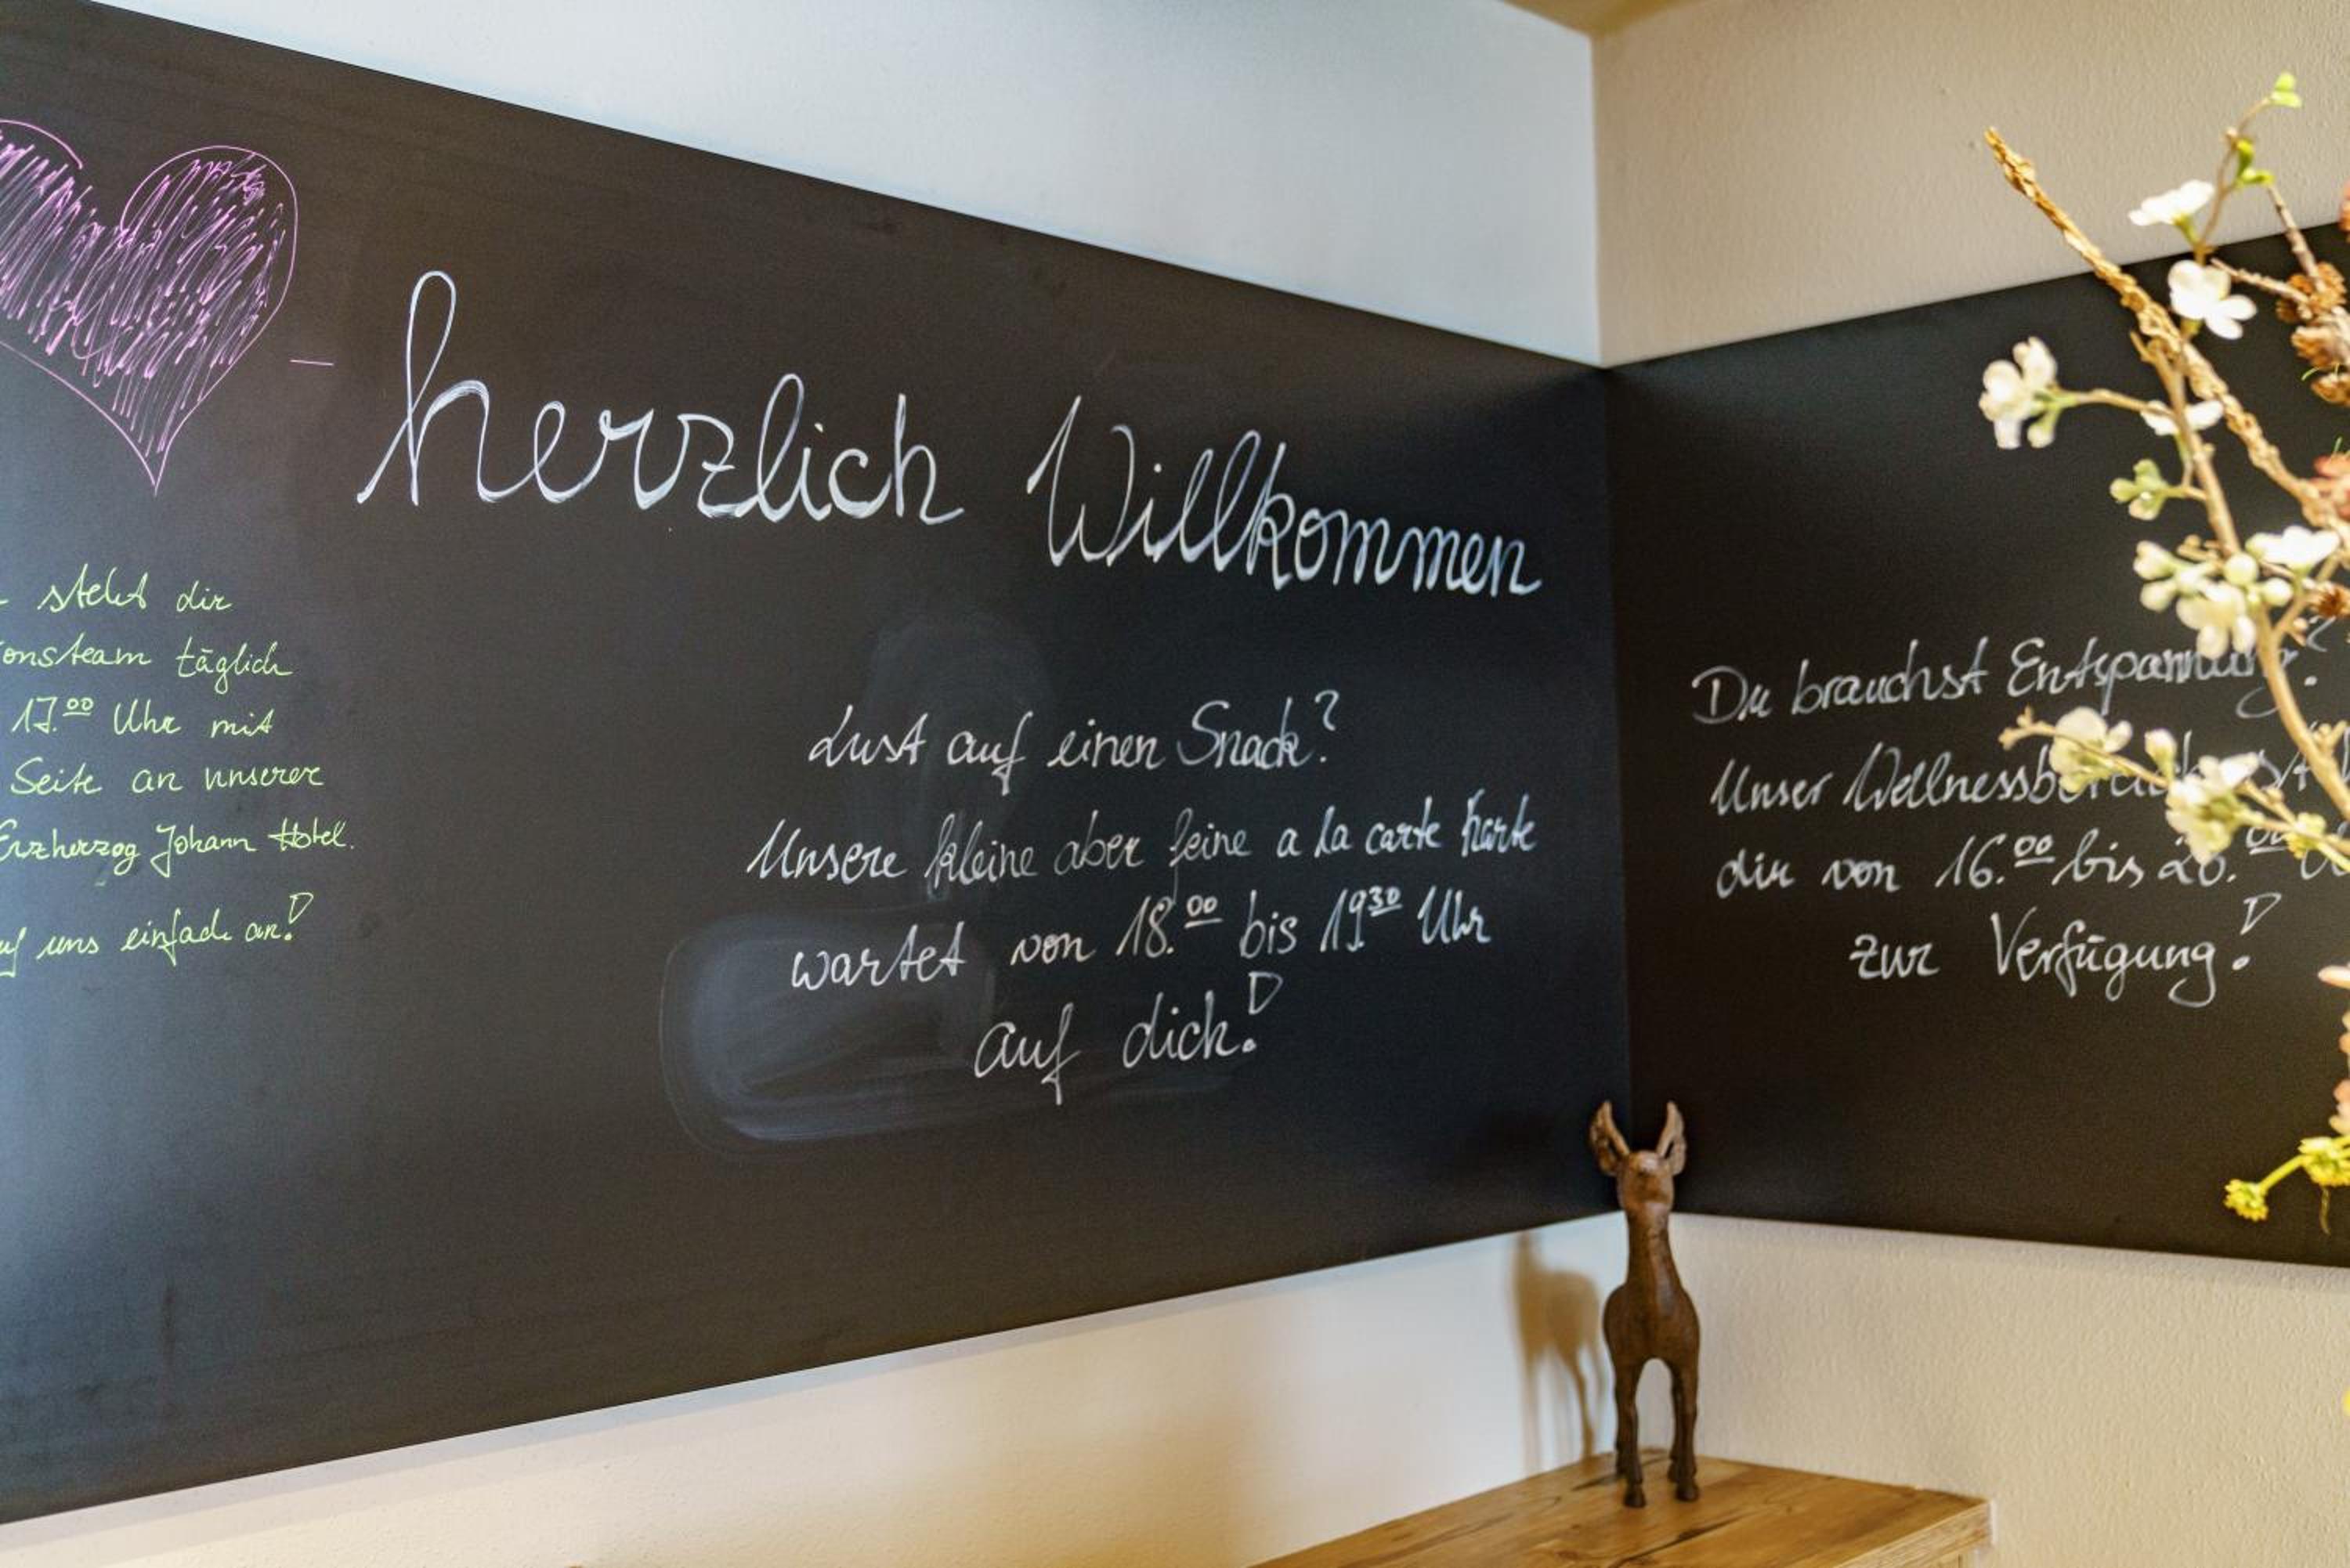 herzlich Willkommen
steht dir
onsteam täglich
17.00 Uhr mit
Seite an unserer
Erzherzog Johann Hotel.
uf uns einfach an!
Lust auf einen Snack?
Unsere kleine aber feine a la carte Karte
wartet von 18.00 bis 19.30 Uhr
auf dich!
Du brauchst Entspannung?
Unser Wellnessbereich
dir von 16.00 bis 20.00
zur Verfügung!